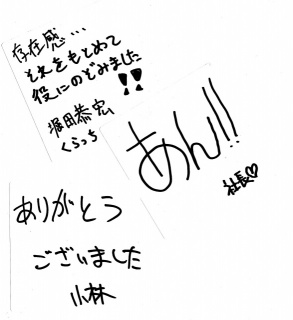 存在感…
それをもとめて
役にのぞみました!!
堀田恭宏
くらっち
あん!!
社長♡
ありがとう
ございました
小林